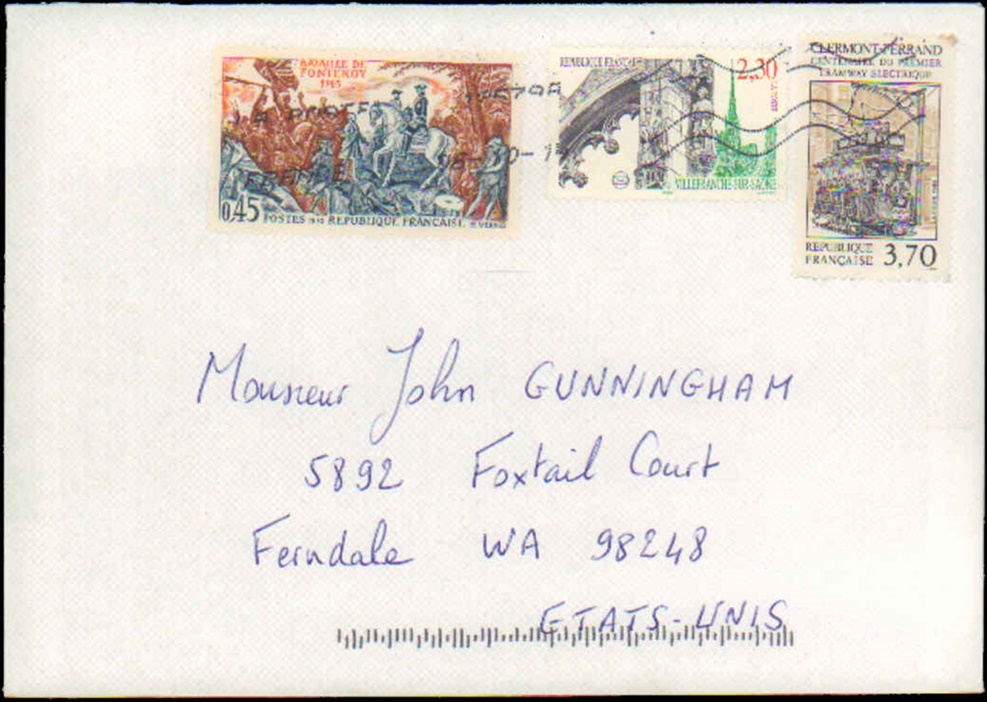 BATAILLE DE
FONTENOY
1745
0,45 POSTES 1970 REPUBLIQUE FRANÇAISE
REPUBLIQUE FRANÇAISE
2,30
VILLEFRANCHE-SUR-SAÔNE
CLERMONT-FERRAND
CENTENAIRE DU PREMIER
TRAMWAY ELECTRIQUE
REPUBLIQUE
FRANÇAISE 3,70
LA POSTE
Monsieur John GUNNINGHAM
5892 Foxtail Court
Ferndale WA 98248
ETATS-UNIS